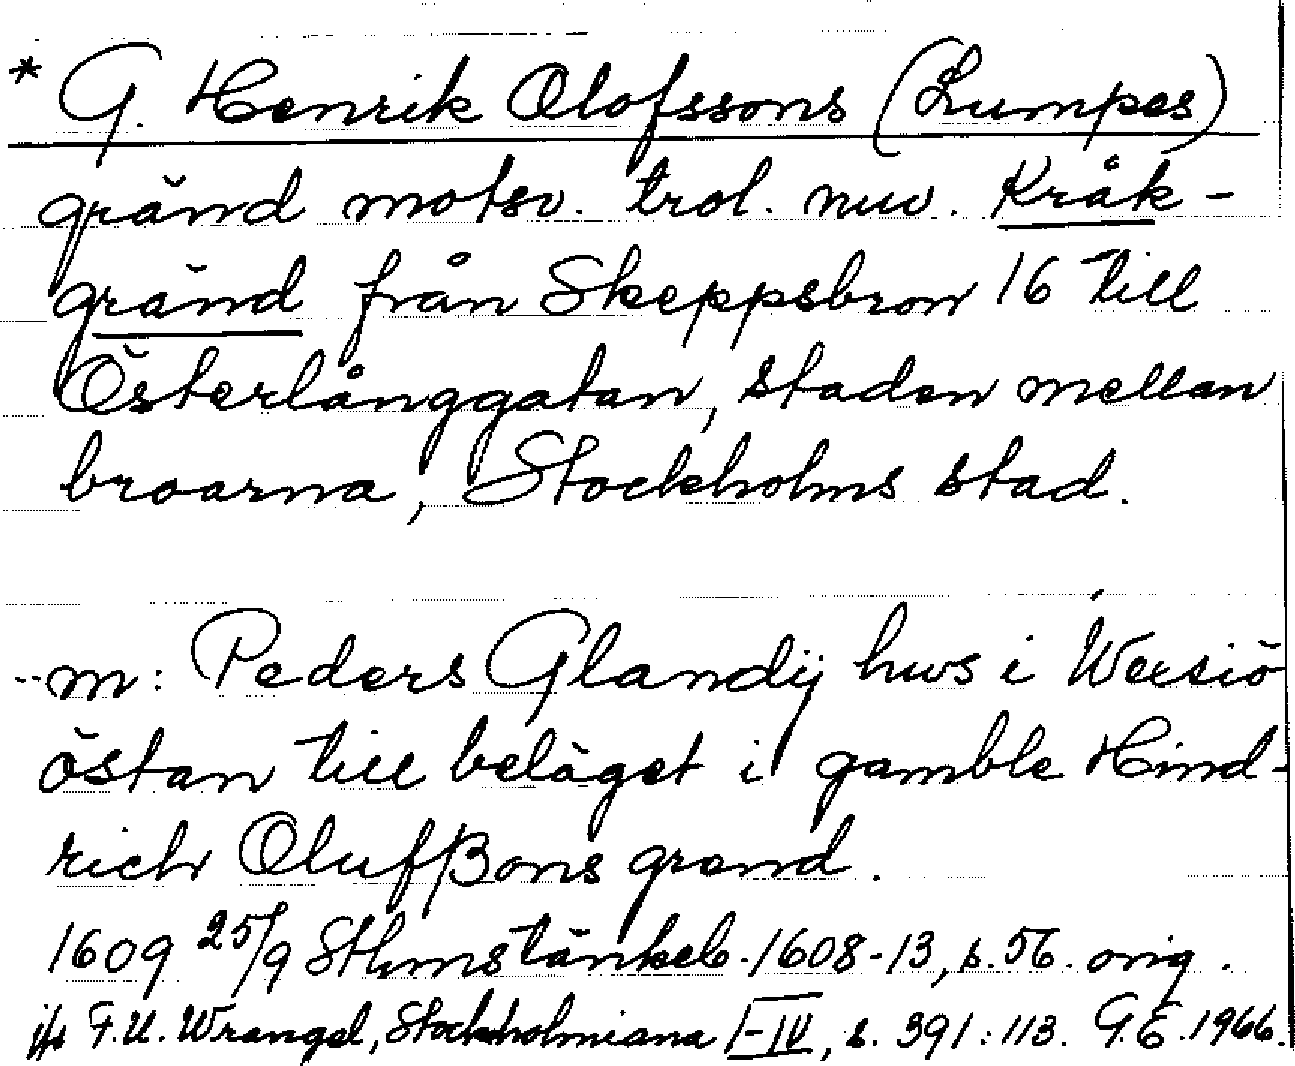 * G. Henrik Olofssons (Lumpes)
gränd motsv. trol. nuv. Kråk-
gränd från Skeppsbron 16 till
Österlånggatan, staden mellan
broarna, Stockholms stad.
--m: Peders Glandij hws i
östan till beläget i gamble Hind-
rich Olufßons grend.
1609 25/9 Sthms tänkeb. 1608-13, s. 56. orig.
jfr F.U. Wrangel, Stockholmiana I-IV, s. 391:113. G.E. 1966.